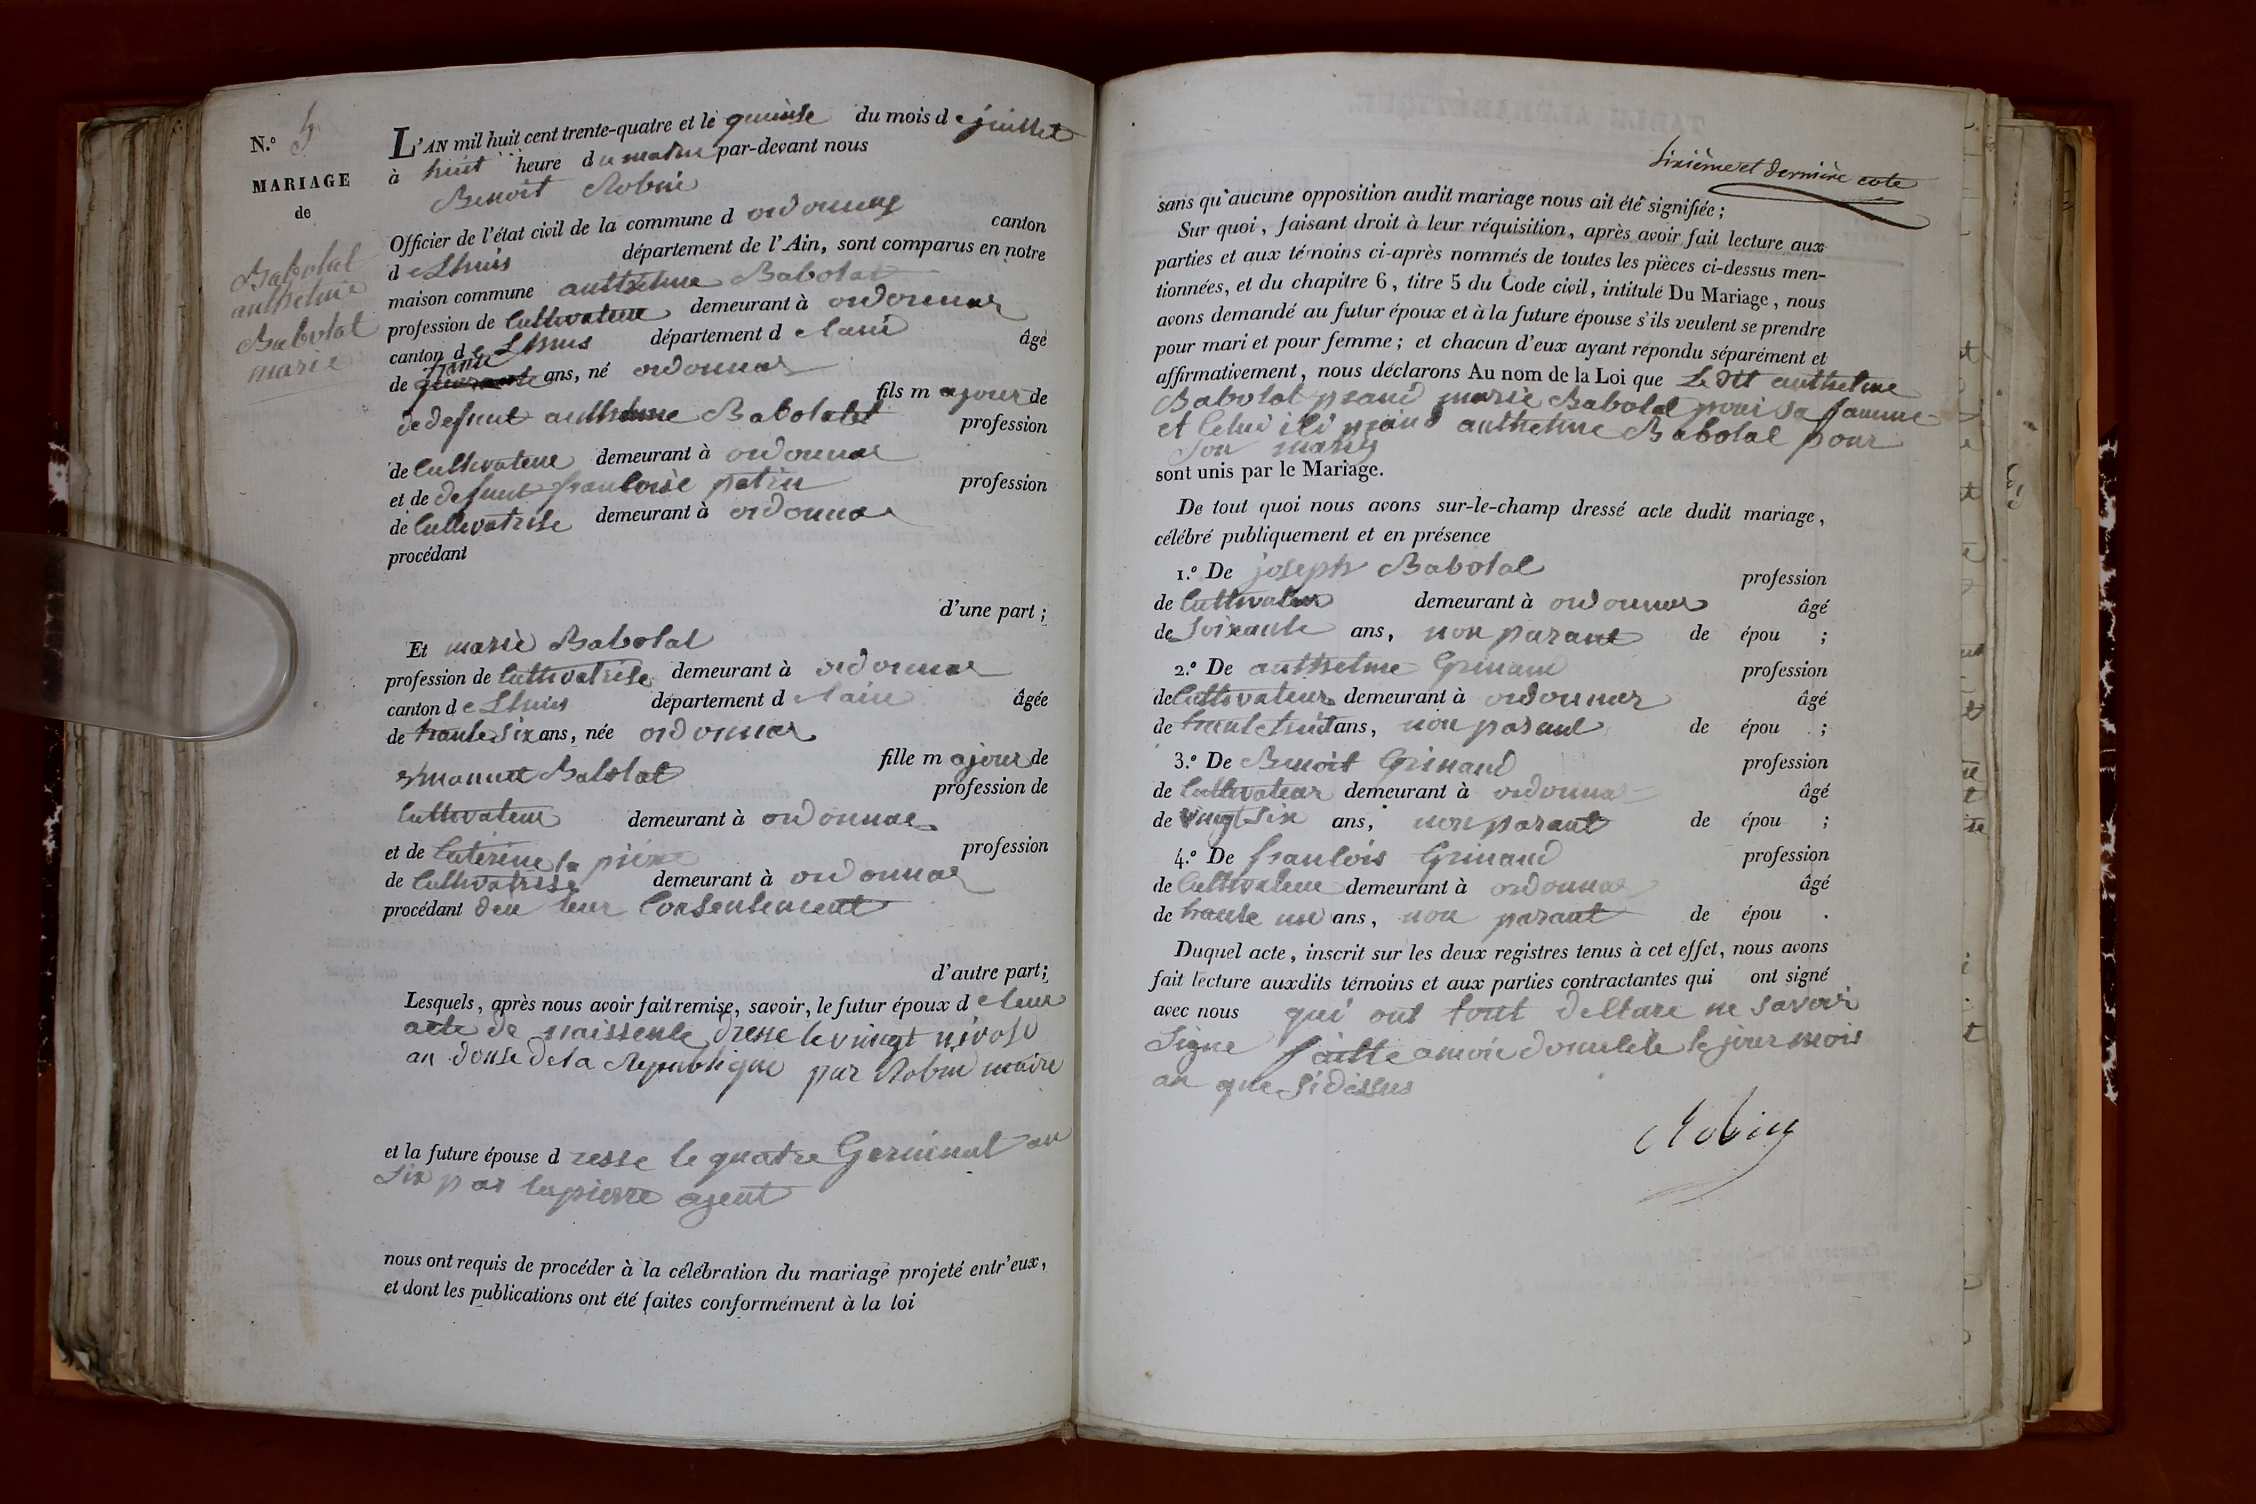 N.º 5
MARIAGE
de
Babolat
anthelme
Babolat
marie
L'AN mil huit cent trente-quatre et le quinse du mois de juillet
à huit heure du matin par-devant nous
Benoit Robin
Officier de l'état civil de la commune d ordonnas canton
de Lhuis département de l'Ain, sont comparus en notre
maison commune anthelme Babolat
profession de Cultivateur demeurant à ordonnas
canton de Lhuis département de lain âgé
trante
de ans, né ordonnas
fils majour de
de defunt anthelme Babolat profession
de Cultivateur demeurant à ordonnas
et de defunt francoise patin profession
de Cultivatrise demeurant à ordonnas
procédant
d'une part ;
Et marie Babolat
profession de Cultivatrise demeurant à ordonnas
canton de Lhuis département de lain âgée
de trante Six ans, née ordonnas
fille majour de
Babolat profession de
Cultivateur demeurant à ordonnas
et de Caterine la pierre profession
de Cultivatrise demeurant à ordonnas
procédant deu leur Consentement
d'autre part ;
Lesquels, après nous avoir fait remise, savoir, le futur époux de leur
acte de naissence dresse le vingt nivose
an douse de la Republique par Robin maire
et la future épouse dresse le quatre Germinal an
Six par lapierre agent
nous ont requis de procéder à la célébration du mariage projeté entr'eux,
et dont les publications ont été faites conformément à la loi
Sixième et dernière cote
sans qu'aucune opposition audit mariage nous ait été signifiée ;
Sur quoi, faisant droit à leur réquisition, après avoir fait lecture aux
parties et aux témoins ci-après nommés de toutes les pièces ci-dessus men-
tionnées, et du chapitre 6, titre 5 du Code civil, intitulé Du Mariage, nous
avons demandé au futur époux et à la future épouse s'ils veulent se prendre
pour mari et pour femme ; et chacun d'eux ayant répondu séparément et
affirmativement, nous déclarons Au nom de la Loi que Le dit anthelme
Babolat prand marie Babolat pour sa famme
et Celui ili prand anthelme Babolat pour
Son maris
sont unis par le Mariage.
De tout quoi nous avons sur-le-champ dressé acte dudit mariage,
célébré publiquement et en présence
1.º De joseph Babolat profession
de Cultivateur demeurant à ordonnas âgé
de Soixante ans, non parant de épou ;
2.º De anthelme Grinand profession
de Cultivateur demeurant à ordonnas âgé
de trante huit ans, non parant de épou ;
3.º De Benoit Grinand profession
de Cultivateur demeurant à ordonnas âgé
de vingt Six ans, non parant de épou ;
4.º De francois Grinand profession
de Cultivateur demeurant à ordonnas âgé
de trante un ans, non parant de épou .
Duquel acte, inscrit sur les deux registres tenus à cet effet, nous avons
fait lecture auxdits témoins et aux parties contractantes qui ont signé
avec nous qui ont tout declare ne savoir
Signe faitte amon domicile le jour mois
an que Sidessus
Robin